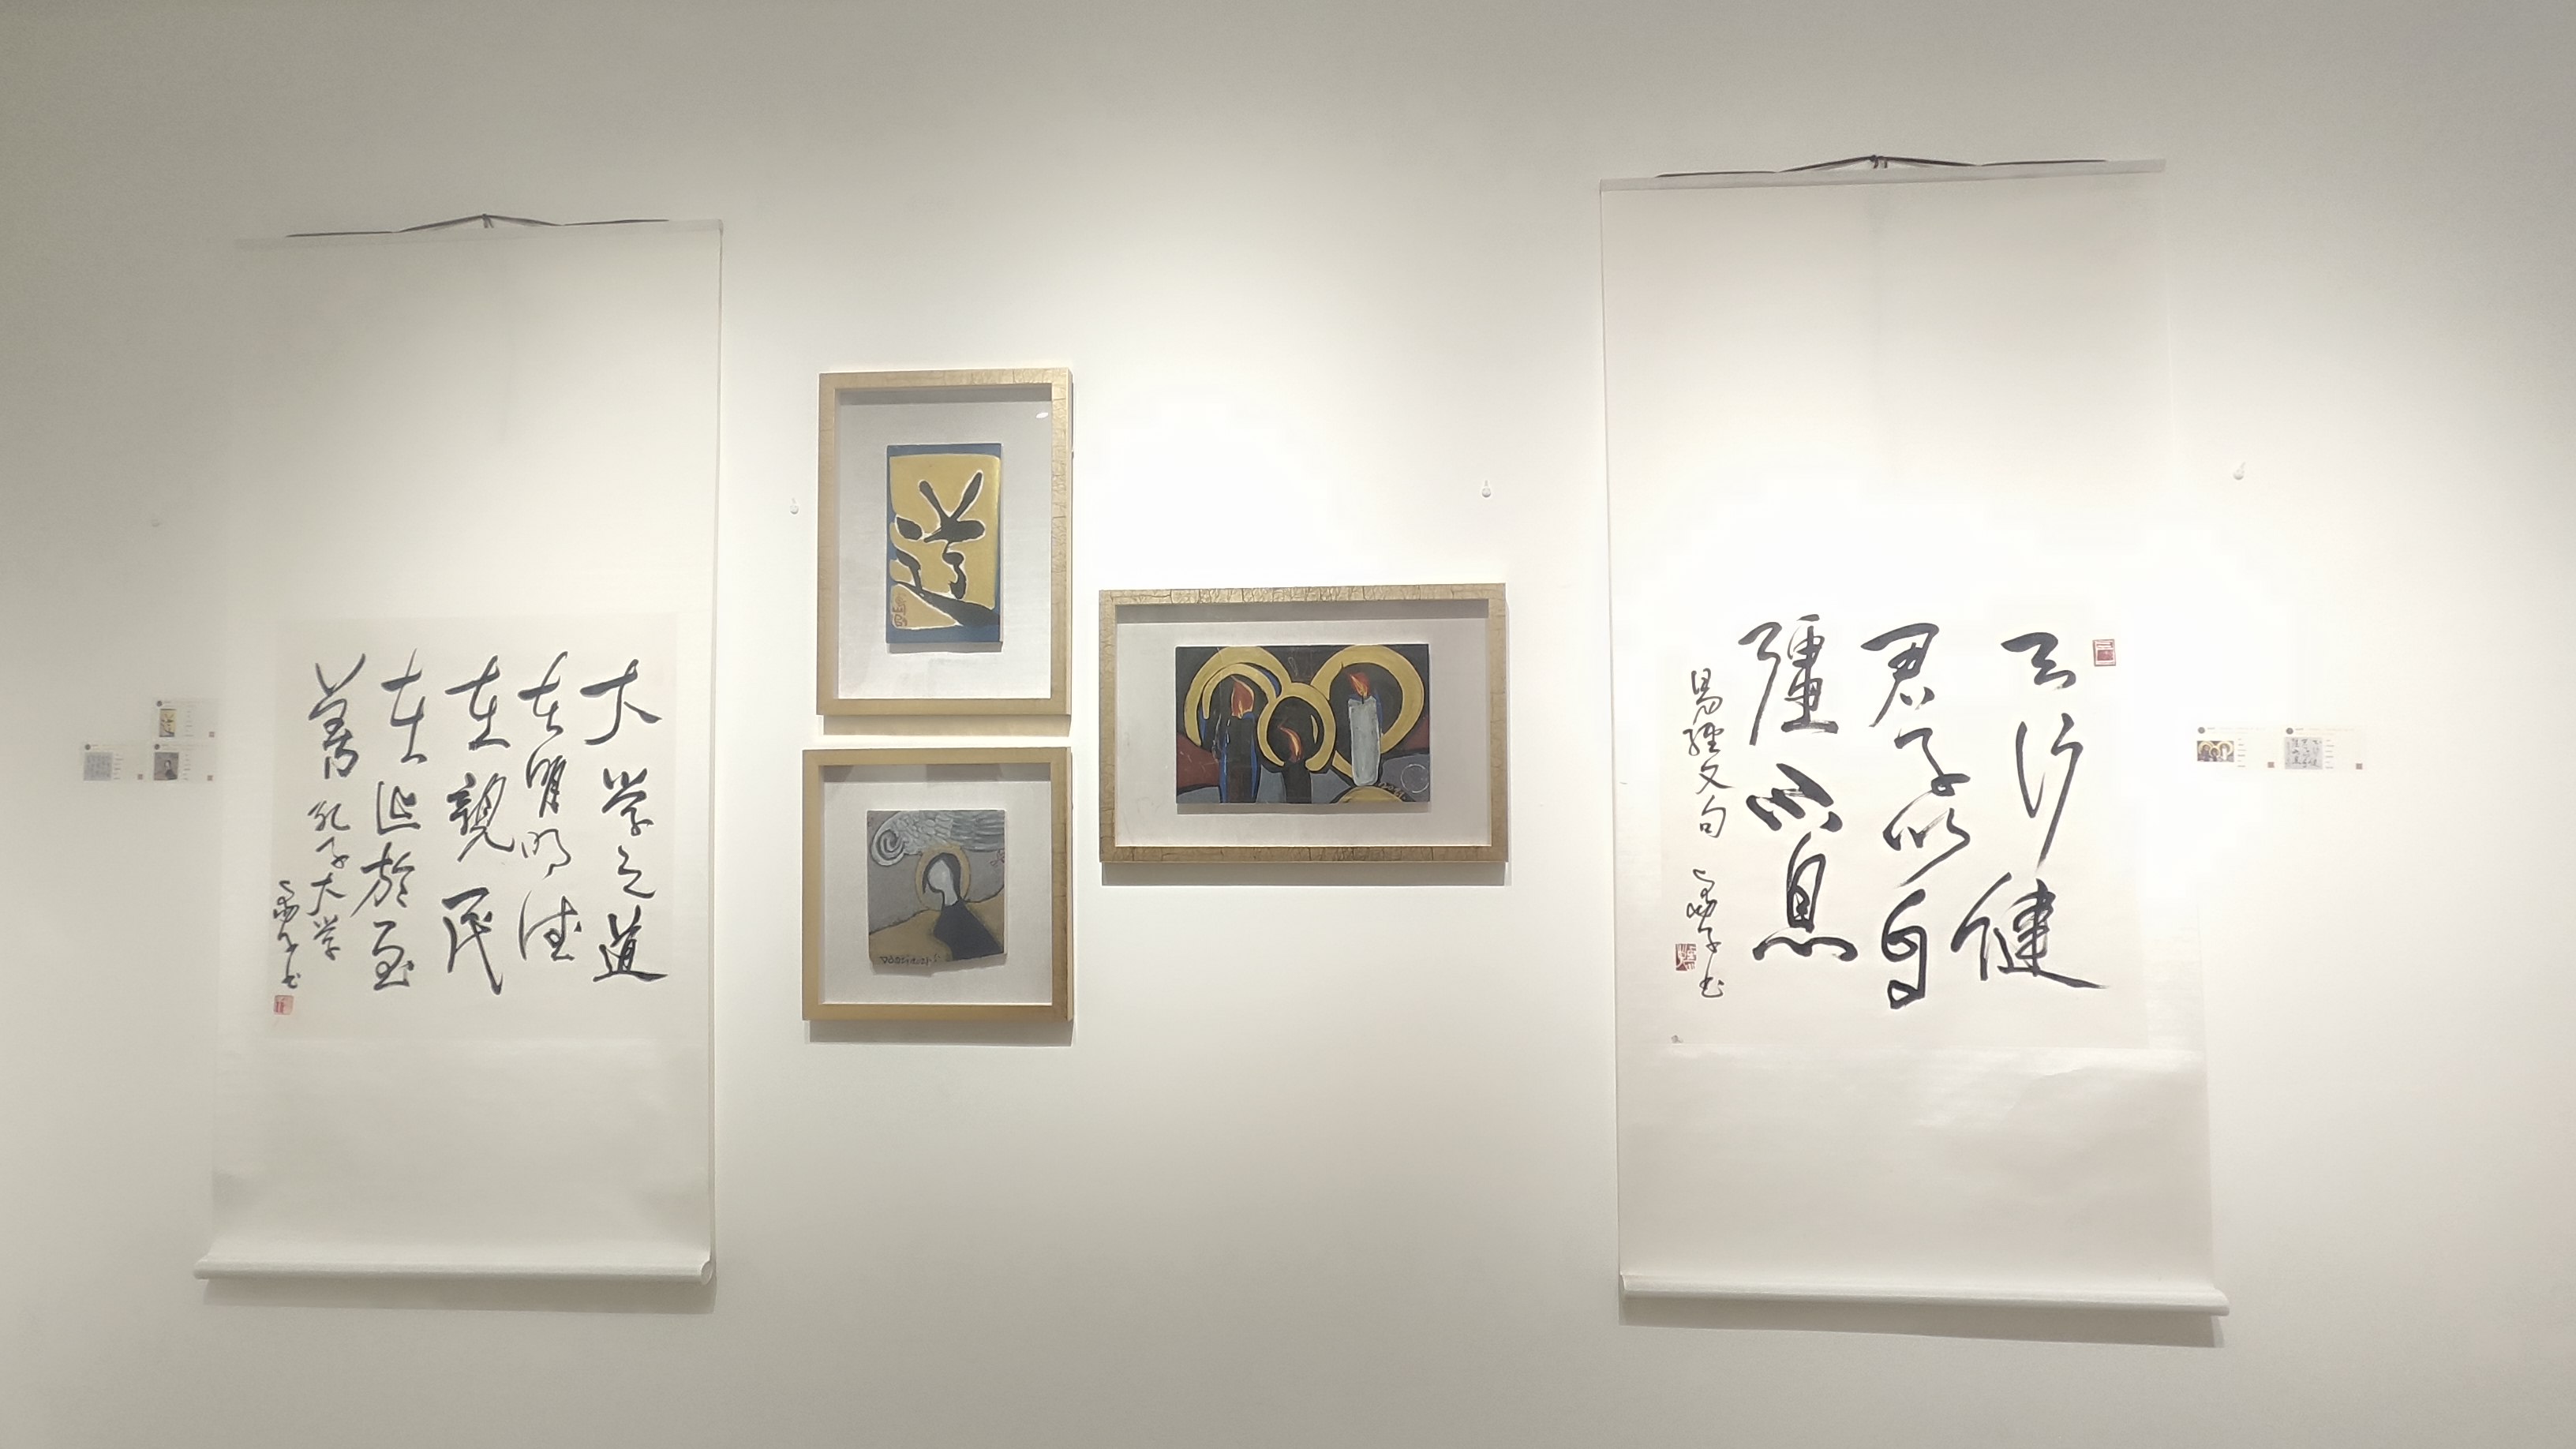 大学之道
在明明德
在親民
在止於至
善 孔子大学
道
天行健
君子以自
彊不息
易經文句